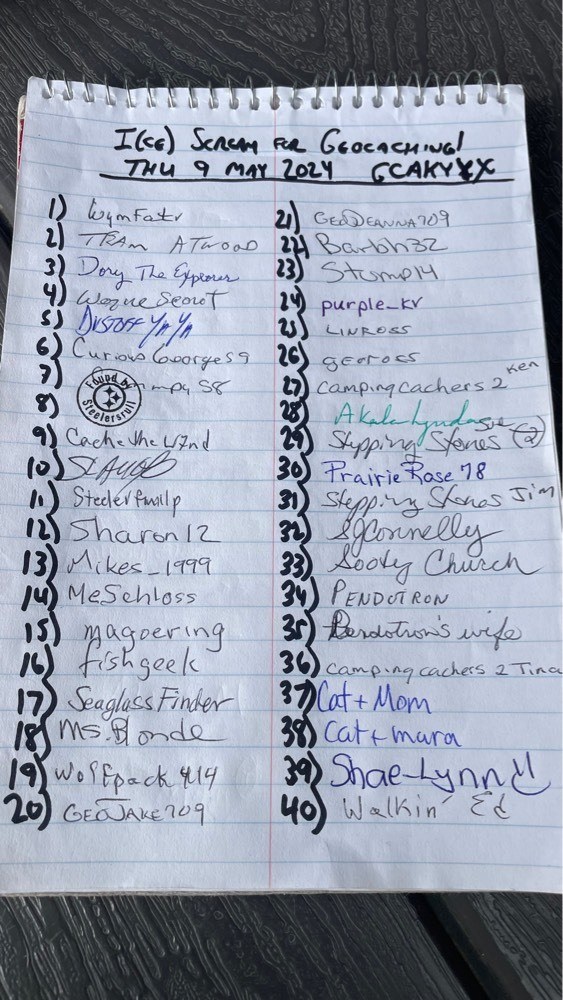 I(CE) SCREAM FOR GEOCACHING!
THU 9 MAY 2024 GCAKYXX
1) WymFatv
2) TRAM ATWOOD
3) Dory The Explorer
4) Wayne Secrot
5) DUSTOFF
6) CuriousGeorge59
7) impy58
8) Found by Steelersrull
9) Cachethew2nd
10)
11) Steelerfamilp
12) Sharon12
13) Mikes_1999
14) MeSchloss
15) magoering
16) fishgeek
17) SeaglassFinder
18) Ms. Blonde
19) Wolfpack 4114
20) GEOJAKE709
21) GEODEANNA709
22) Barbh32
23) Stump14
24) purple_kv
25) LINROSS
26) georoSS
27) camping cachers 2 Ken
28) Akela Lynda
29) Stepping Stones (2) Sue
30) Prairie Rose 78
31) Stepping Stones Jim
32) SJConnelly
33) Sooty Church
34) PENDOTRON
35) Pendotron's wife
36) camping cachers 2 Tina
37) Cat + Mom
38) Cat + mara
39) Shae-Lynn
40) Walkin' Ed